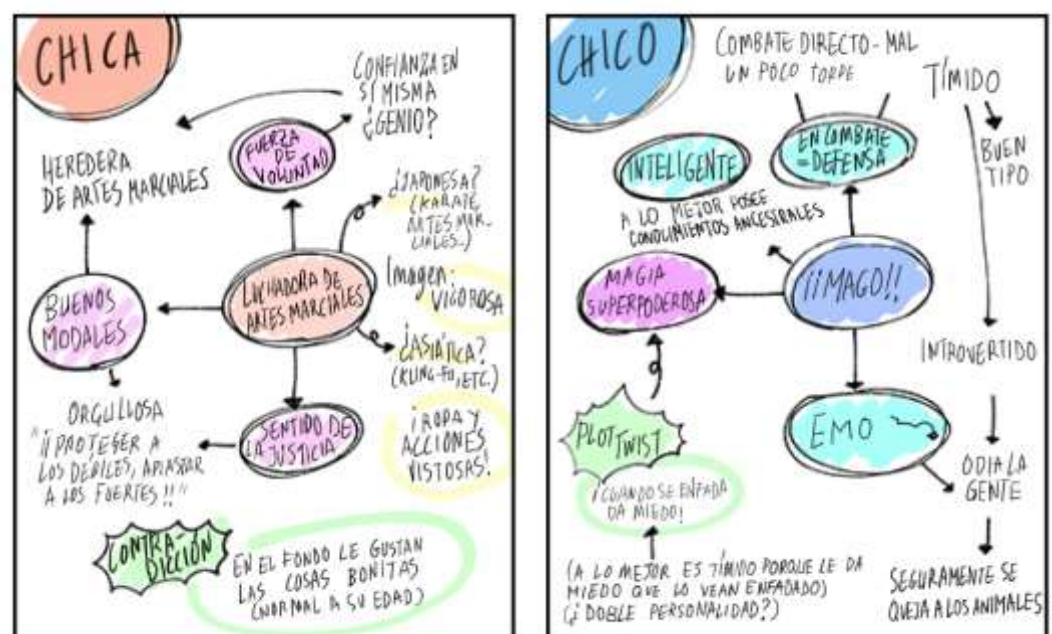 CHICA
CONFIANZA EN
SÍ MISMA
¿GENIO?
FUERZA
DE
VOLUNTAD
HEREDERA
DE ARTES MARCIALES
¿JAPONESA?
(KARATE,
ARTES MAR-
CIALES...)
LUCHADORA DE
ARTES MARCIALES
Imagen:
VIGOROSA
BUENOS
MODALES
¿ASIÁTICA?
(KUNG-FU, ETC.)
ORGULLOSA
"¡¡PROTEGER A
LOS DÉBILES, APLASTAR
A LOS FUERTES!!"
SENTIDO DE
LA JUSTICIA
¡ROPA Y
ACCIONES
VISTOSAS!
CONTRA-
DICCIÓN
EN EL FONDO LE GUSTAN
LAS COSAS BONITAS
(NORMAL A SU EDAD)
CHICO
COMBATE DIRECTO - MAL
UN POCO TORPE
TÍMIDO
BUEN
TIPO
INTELIGENTE
EN COMBATE
= DEFENSA
A LO MEJOR POSEE
CONOCIMIENTOS ANCESTRALES
MAGIA
SUPERPODEROSA
¡¡MAGO!!
INTROVERTIDO
PLOT TWIST
EMO
¡CUANDO SE ENFADA
DA MIEDO!
ODIA LA
GENTE
(A LO MEJOR ES TÍMIDO PORQUE LE DA
MIEDO QUE LO VEAN ENFADADO)
(¿DOBLE PERSONALIDAD?)
SEGURAMENTE SE
QUEJA A LOS ANIMALES